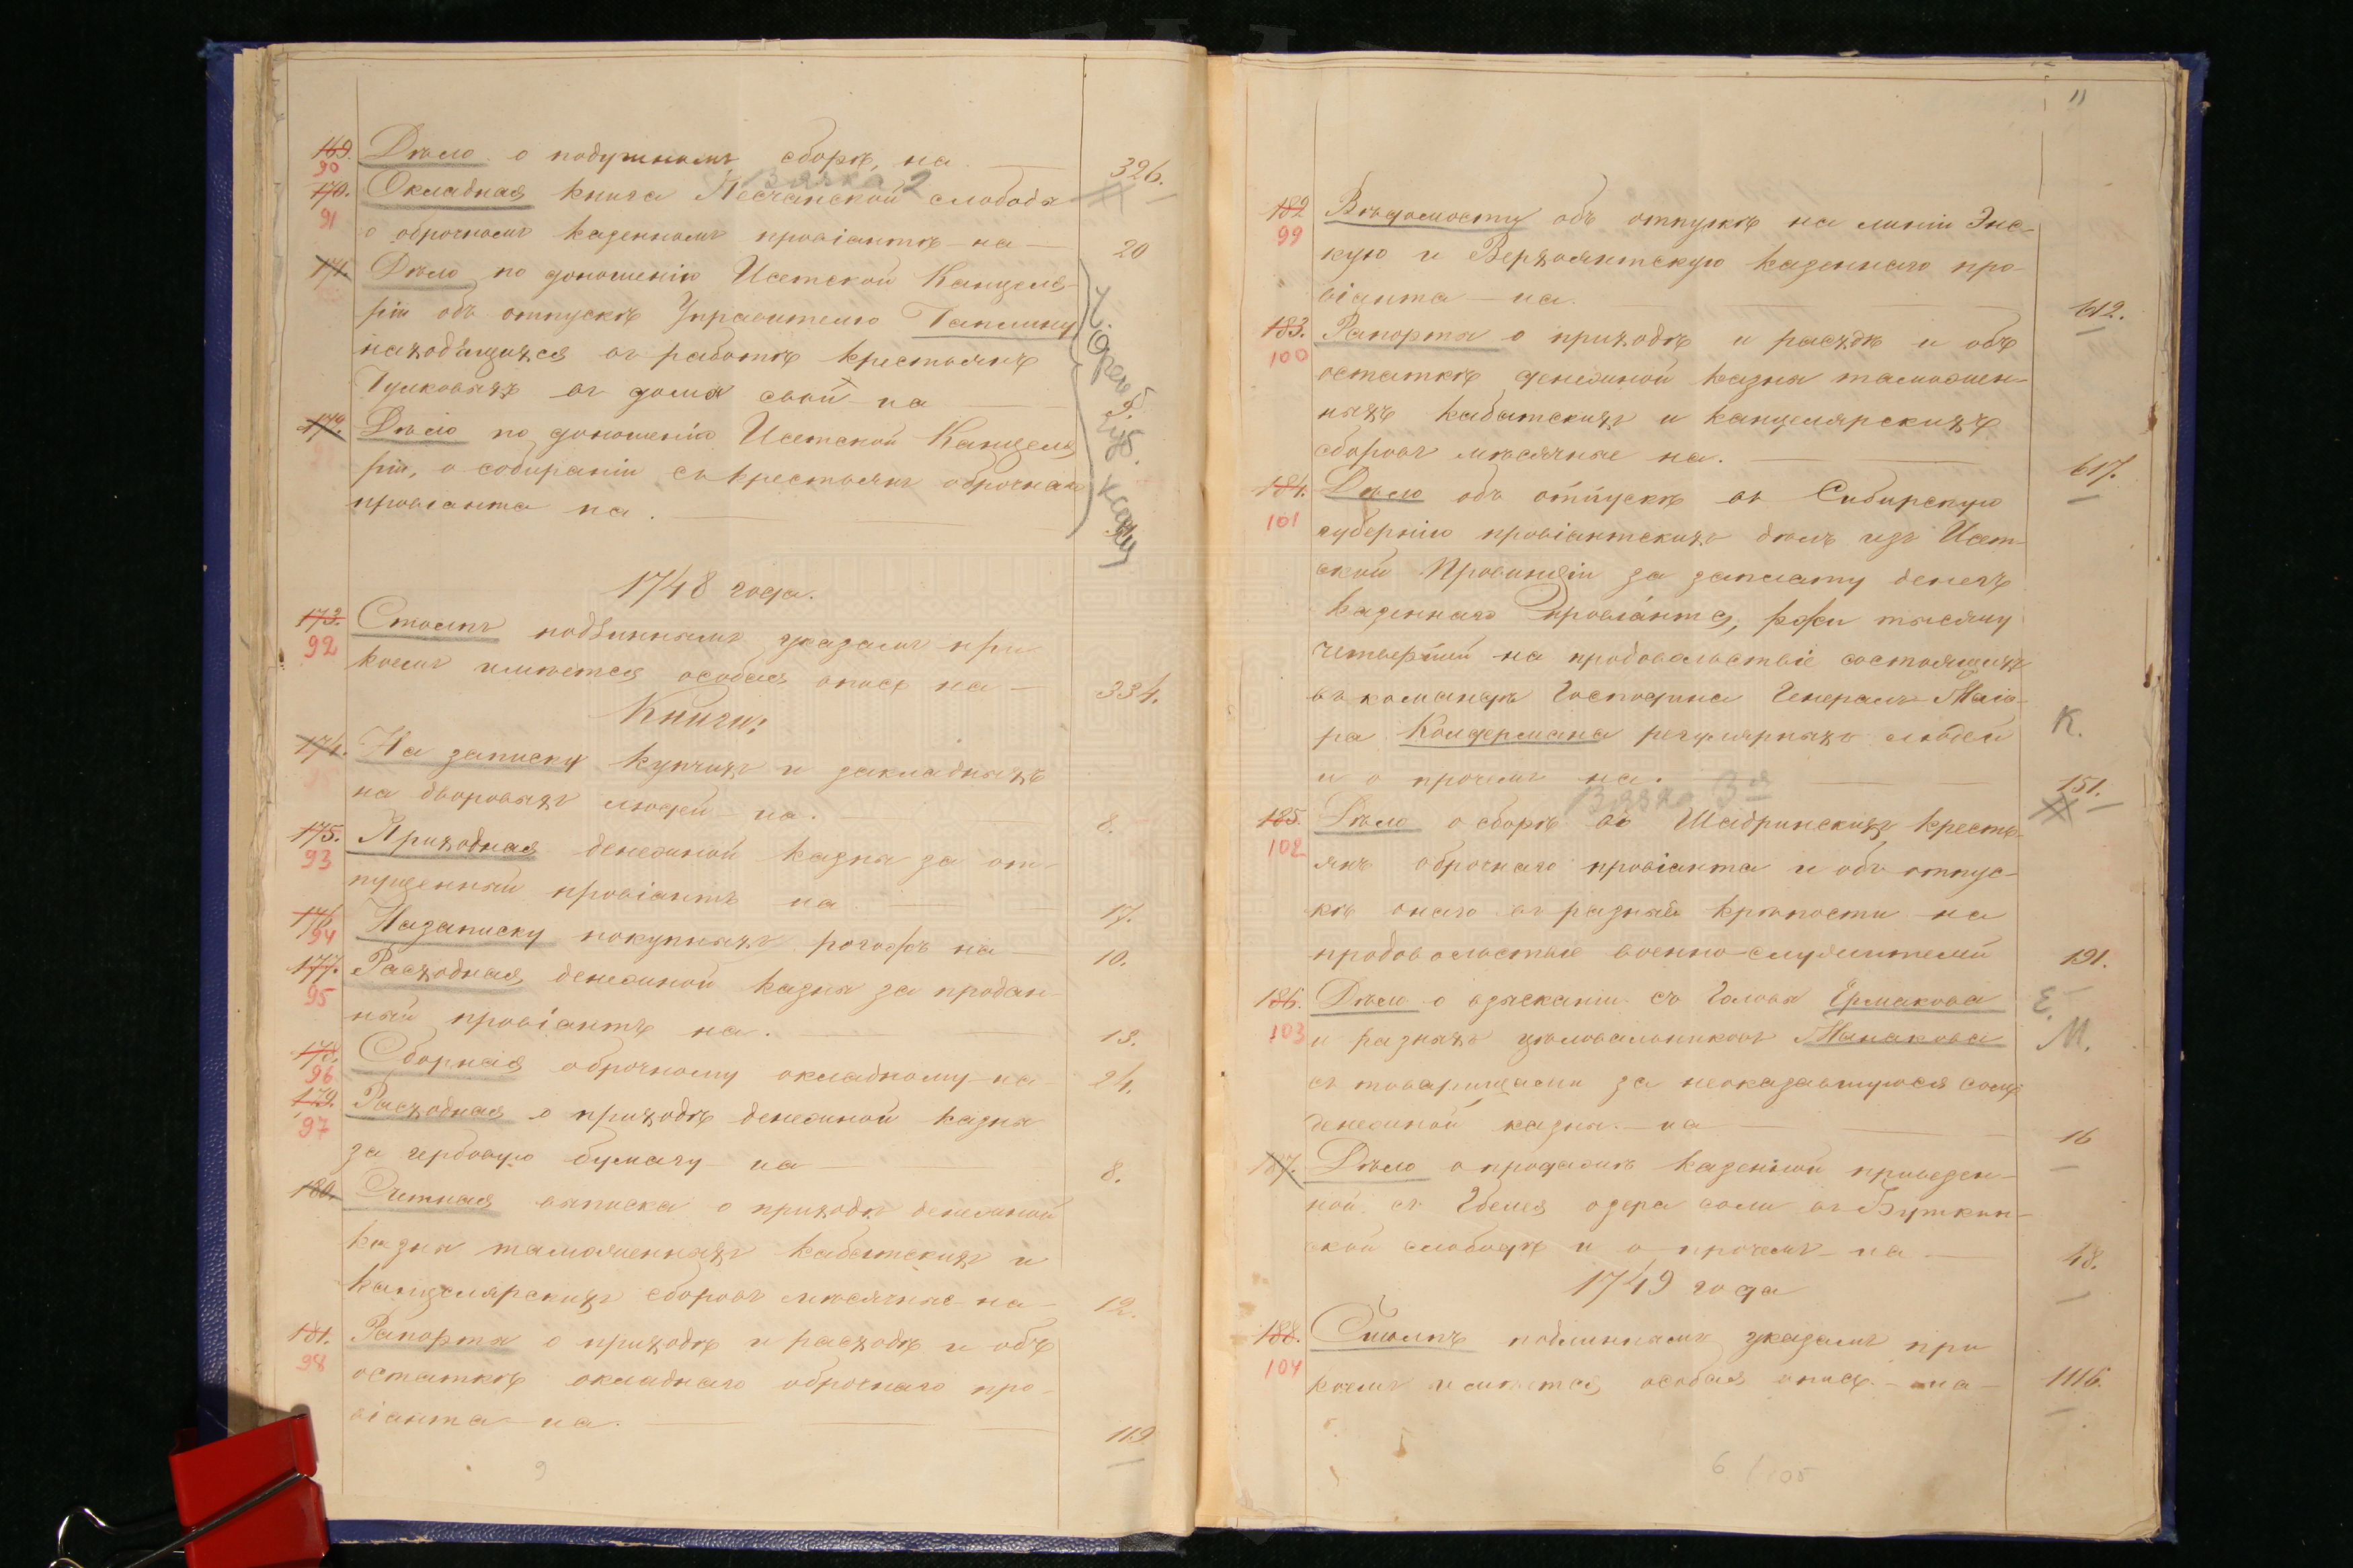 169. Дѣло о подушномъ сборѣ, на — 326.
90
Вязка 2
170. Окладная книга Песчанской слободы
91
о оброчномъ казенномъ провіантѣ на — 20
171. Дѣло по доношенію Исетской Канцеля-
ріи объ отпускѣ Управителю
находящихся въ работѣ крестьянъ
въ домы свои на —
172. Дѣло по доношенію Исетской Канцеля
ріи, о собираніи съ крестьянъ оброчнаго
провіанта на.
1748 года.
173. Столпъ подлиннымъ указамъ при
92
коемъ имѣется особая опись на — 334.
Книги:
174. На записку купчихъ и закладныхъ
на дворовыхъ людей на. — 8.
175. Приходная денежной казны за от-
93
пущенный провіантъ на — 17.
176. На записку покупныхъ рогожъ на — 10.
94
177. Расходная денежной казны за продан-
95
ный провіантъ на. — 13.
178. Сборная оброчному окладному на — 24.
96
179. Расходная о приходѣ денежной казны
97
за гербовую бумагу на — 8.
180. Счетная выписка о приходѣ денежной
казны таможенныхъ кабатскихъ и
канцелярскихъ сборовъ мѣсячные на — 12.
181. Рапорты о приходѣ и расходѣ и объ
98
остаткѣ окладнаго оброчнаго про-
віанта на. — 119
9
11
182 Вѣдомости объ отпускѣ на линіи
99
кую и Верхояитскую казеннаго про-
віанта — на. — 612.
183. Рапорты о приходѣ и расходѣ и объ
100
остаткѣ денежной казны таможен-
ныхъ кабатскихъ и канцелярскихъ
сборовъ мѣсячные на. — 617.
184. Дѣло объ отпускѣ въ Сибирскую
101
губернію провіантскихъ дѣлъ изъ Исет-
ской Провинціи за заплату денегъ
казеннаго провіанта, ржи тысячу
четвертей на продовольствіе состоящихъ
въ командѣ Господина Генералъ Маіо-
ра Киндермана регулярныхъ людей К.
и о прочемъ на. — 151.
Вязка 3я
185. Дѣло о сборѣ съ Шадринскихъ кресть-
102
янъ оброчнаго провіанта и объ отпус-
кѣ онаго въ разные крѣпости на
продовольствіе военно-служителей 191.
186. Дѣло о взысканіи съ Головы Ермакова Е.
103
и разныхъ цѣловальниковъ Манакова М.
съ товарищами за неоказавшуюся
денежной казны — на — 16
187. Дѣло о продажѣ казенной привезен-
ной съ Эбелея озера соли въ Буткин-
ской слободѣ и о прочемъ на — 48.
1749 года
188. Столпъ подлиннымъ указамъ при
104
коемъ имѣется особая опись — на — 1116.
6/105